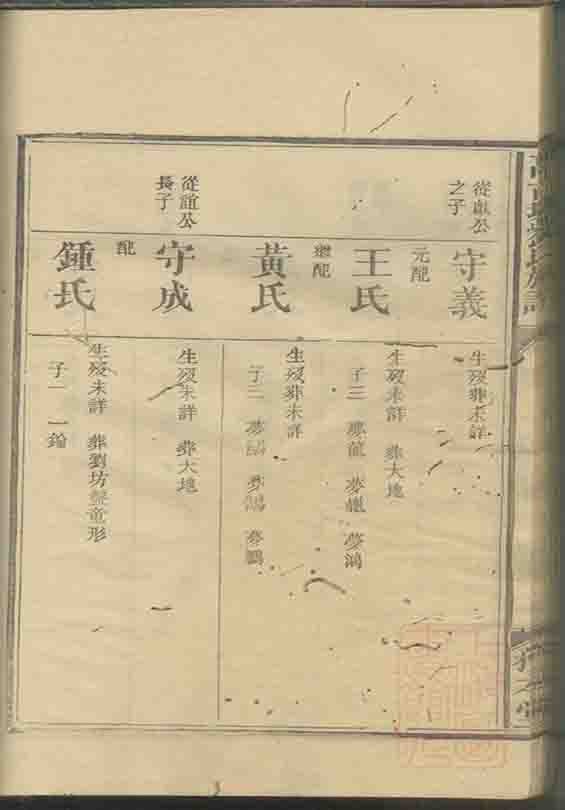 從獻公
之子
守義
生殁葬未詳
元配
王氏
生殁未詳 葬大地
子三 夢龍 夢 夢鴻
繼配
黃氏
生殁葬未詳
子三 夢 夢鴻 夢鵬
從誼公
長子
守成
生殁未詳 葬大地
配
鍾氏
生殁未詳 葬劉坊 童形
子一 一鑰
氏族譜